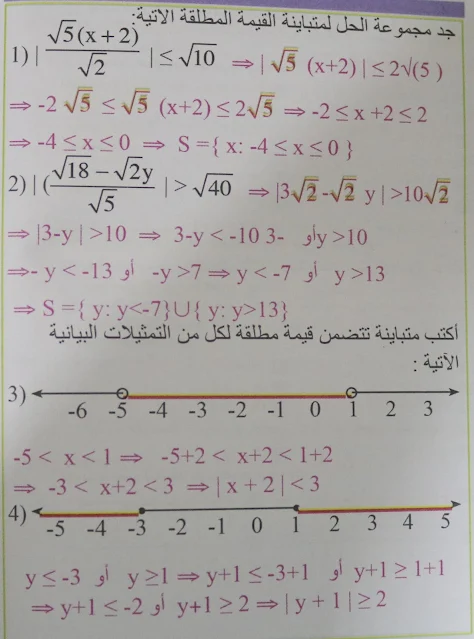 جد مجموعة الحل لمتباينة القيمة المطلقة الآتية:
1) | √5(x + 2) / √2 | ≤ √10 ⇒ | √5 (x+2) | ≤ 2√(5 )
⇒ -2 √5 ≤ √5 (x+2) ≤ 2√5 ⇒ -2 ≤ x +2 ≤ 2
⇒ -4 ≤ x ≤ 0 ⇒ S ={ x: -4 ≤ x ≤ 0 }
2) | (√18 − √2y / √5 | > √40 ⇒ |3√2 -√2 y | >10√2
⇒ |3-y | >10 ⇒ 3-y < -10 3- أوy >10
⇒- y < -13 أو -y >7 ⇒ y < -7 أو y >13
⇒ S ={ y: y<-7}∪{ y: y>13}
أكتب متباينة تتضمن قيمة مطلقة لكل من التمثيلات البيانية
الآتية :
3) -6 -5 -4 -3 -2 -1 0 1 2 3
-5 < x < 1 ⇒ -5+2 < x+2 < 1+2
⇒ -3 < x+2 < 3 ⇒ | x + 2 | < 3
4) -5 -4 -3 -2 -1 0 1 2 3 4 5
y ≤ -3 أو y ≥1 ⇒ y+1 ≤ -3+1 أو y+1 ≥ 1+1
⇒ y+1 ≤ -2 أو y+1 ≥ 2 ⇒ | y + 1 | ≥ 2